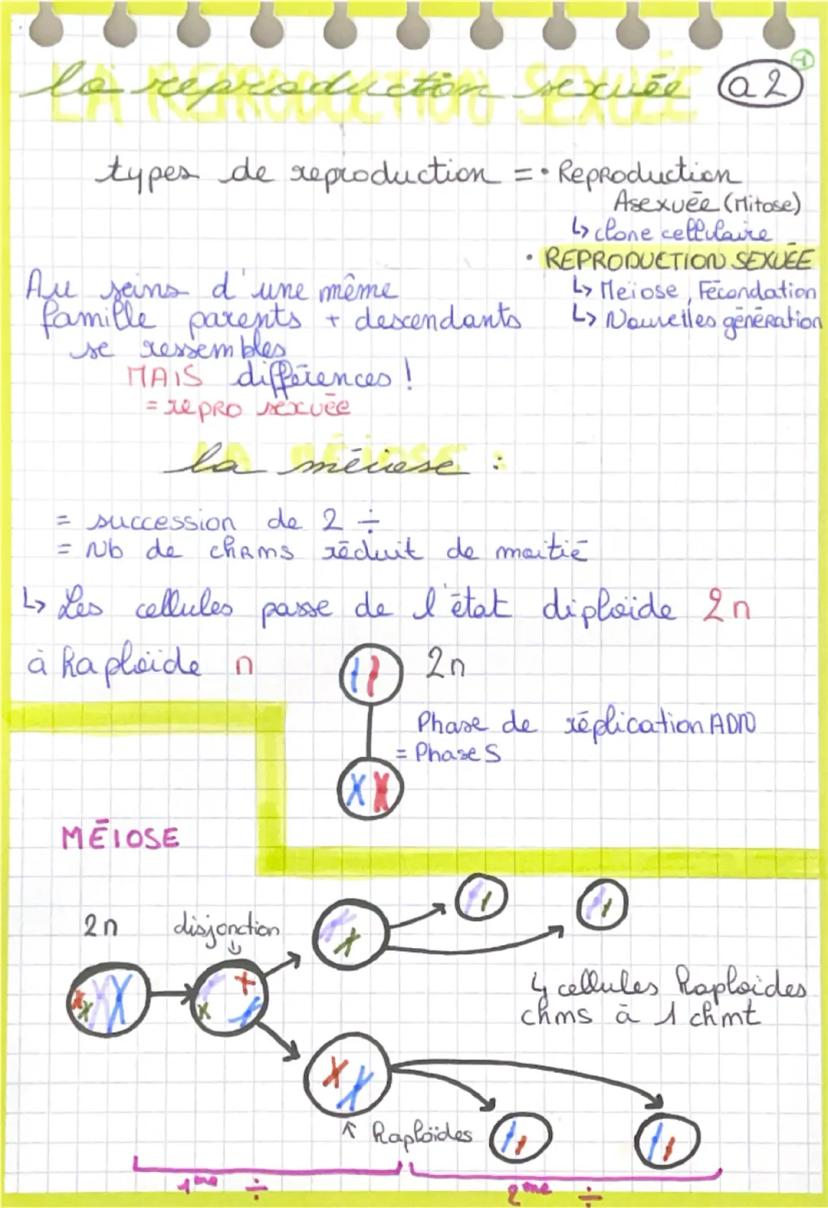 la reproduction sexuée a2
LA REPRODUCTION SEXUÉE
types de reproduction = • Reproduction
Asexuée (Mitose)
↳ clone cellulaire
• REPRODUCTION SEXUÉE
↳ Meiose, Fécondation
↳ Nouvelles génération
Au seins d'une même
famille parents + descendants
se ressembles
MAIS différences !
= repro sexuée
la méiose :
LA MÉIOSE :
= succession de 2 ÷
= Nb de chrms réduit de moitié
↳ Les cellules passe de l'état diploïde 2n
à haploïde n
2n
Phase de réplication ADN
= Phase S
MÉIOSE
2n
disjonction
4 cellules haploïdes
chms à 1 chmt
↖ haploïdes
1ère ÷
2ème ÷